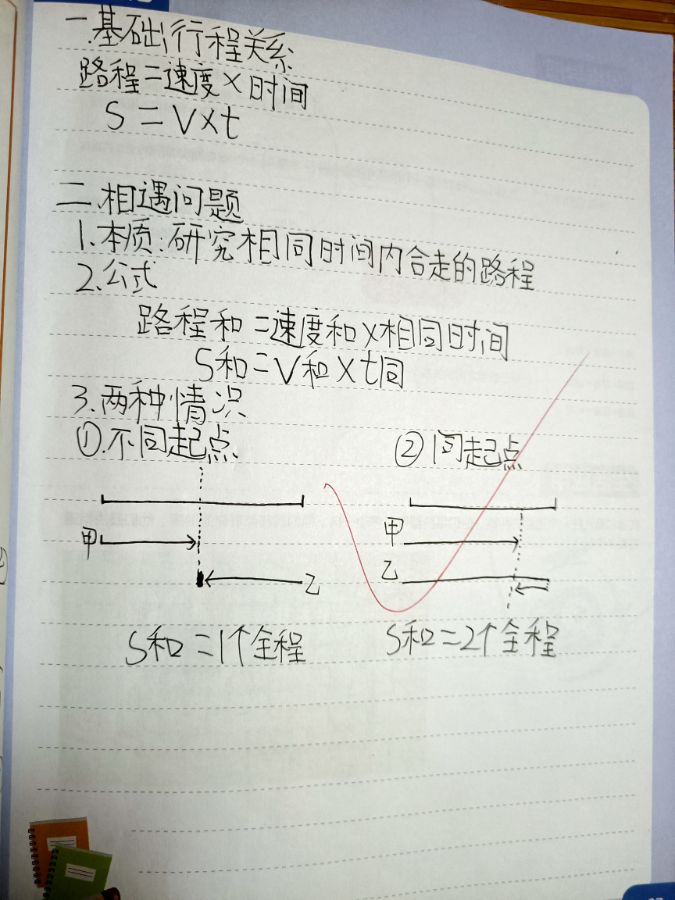 一.基础行程关系
路程=速度×时间
S=V×t
二.相遇问题
1.本质:研究相同时间内合走的路程
2.公式
路程和=速度和×相同时间
S和=V和×t同
3.两种情况
①.不同起点
②同起点
甲
乙
甲
乙
S和=1个全程
S和=2个全程